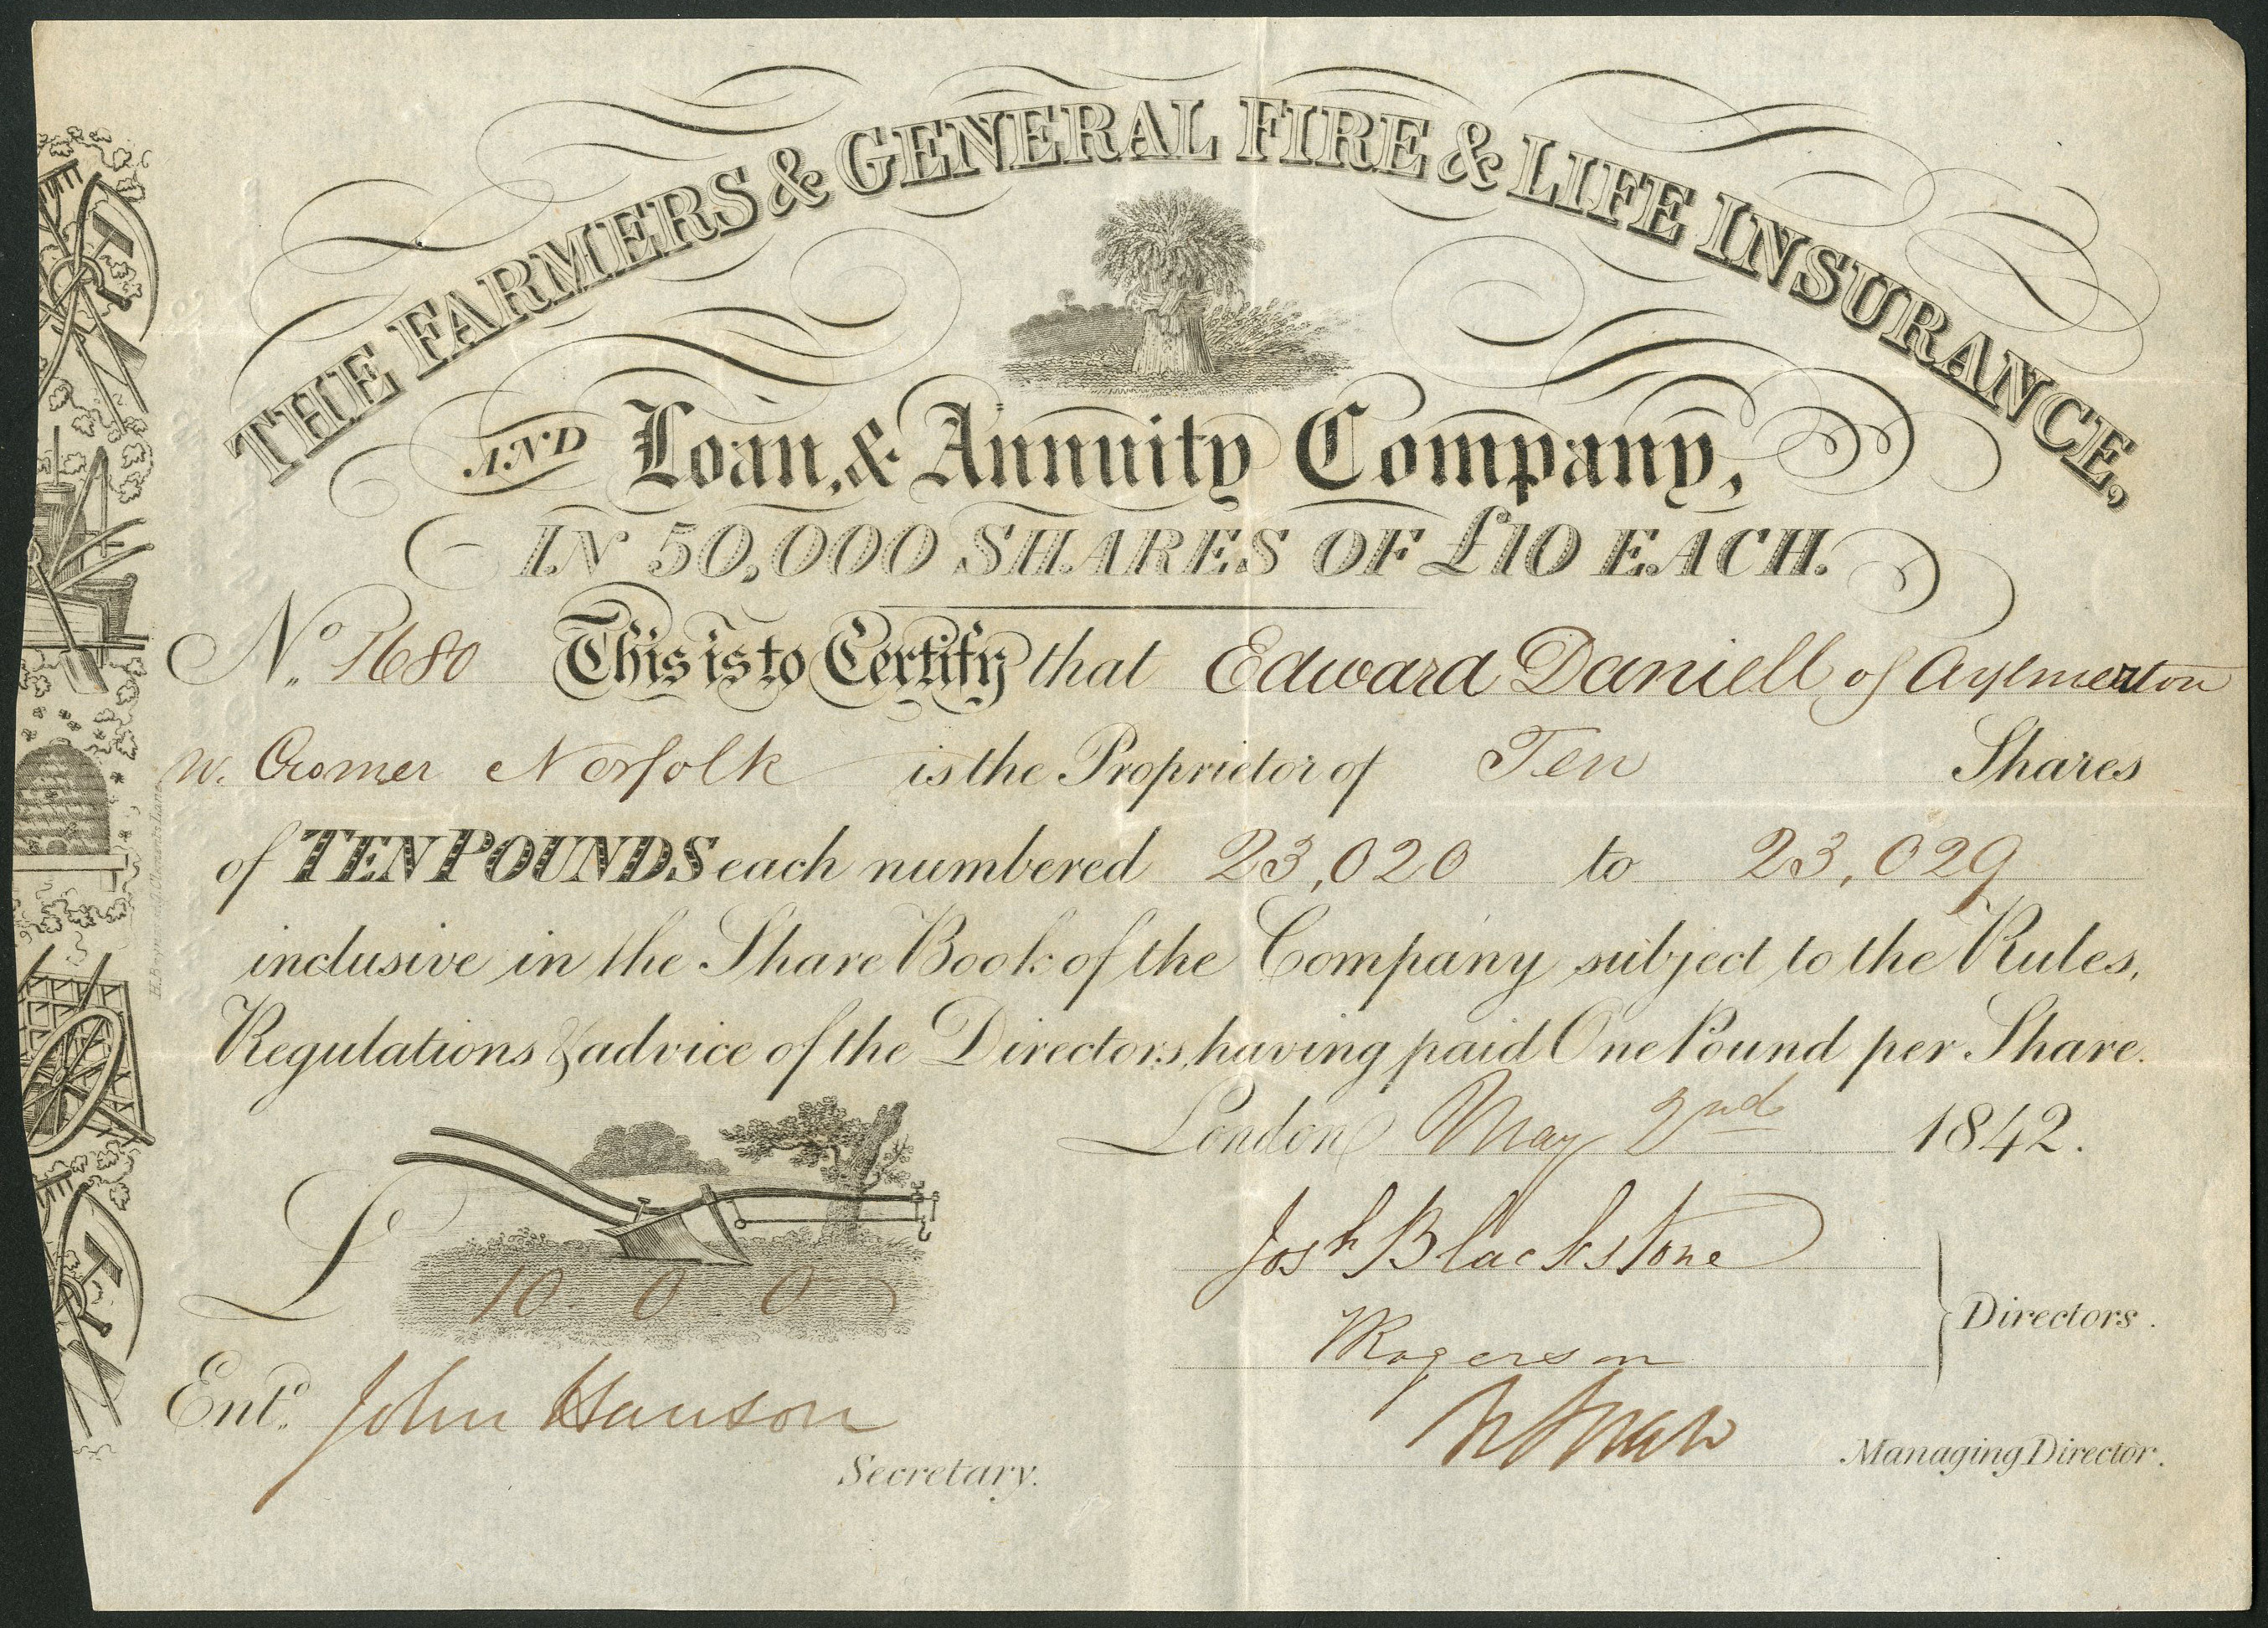 THE FARMERS & GENERAL FIRE & LIFE INSURANCE,
AND Loan, & Annuity Company,
IN 50,000 SHARES OF £10 EACH.
No. 1680 This is to Certify that Edward Daniell of Aylmerton
Cromer Norfolk is the Proprietor of Ten Shares
of TEN POUNDS each numbered 23,020 to 23,029
inclusive in the Share Book of the Company subject to the Rules,
Regulations & advice of the Directors, having paid One Pound per Share.
London May 2nd 1842.
£ 10 0 0
Josh Blackstone
Rogerson
Directors.
Entd. John Hanson
Secretary.
Managing Director.